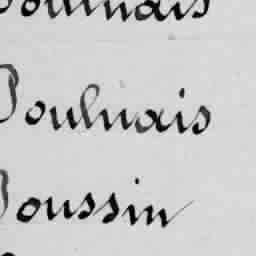 Poulnais
Poulnais
Poussin